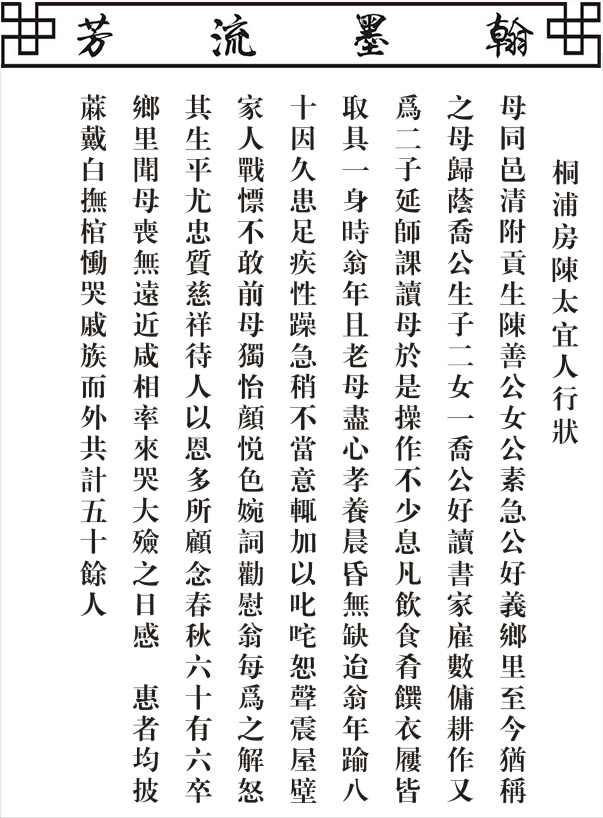 翰墨流芳
桐浦房陳太宜人行狀
母同邑清附貢生陳善公女公素急公好義鄉里至今猶稱
之母歸蔭喬公生子二女一喬公好讀書家雇數傭耕作又
爲二子延師課讀母於是操作不少息凡飲食肴饌衣屨皆
取具一身時翁年且老母盡心孝養晨昏無缺迨翁年踰八
十因久患足疾性躁急稍不當意輒加以叱咤恕聲震屋壁
家人戰慄不敢前母獨怡顔悦色婉詞勸慰翁每爲之解怒
其生平尤忠質慈祥待人以恩多所顧念春秋六十有六卒
鄉里聞母喪無遠近咸相率來哭大殮之日感　惠者均披
蔴戴白撫棺慟哭戚族而外共計五十餘人